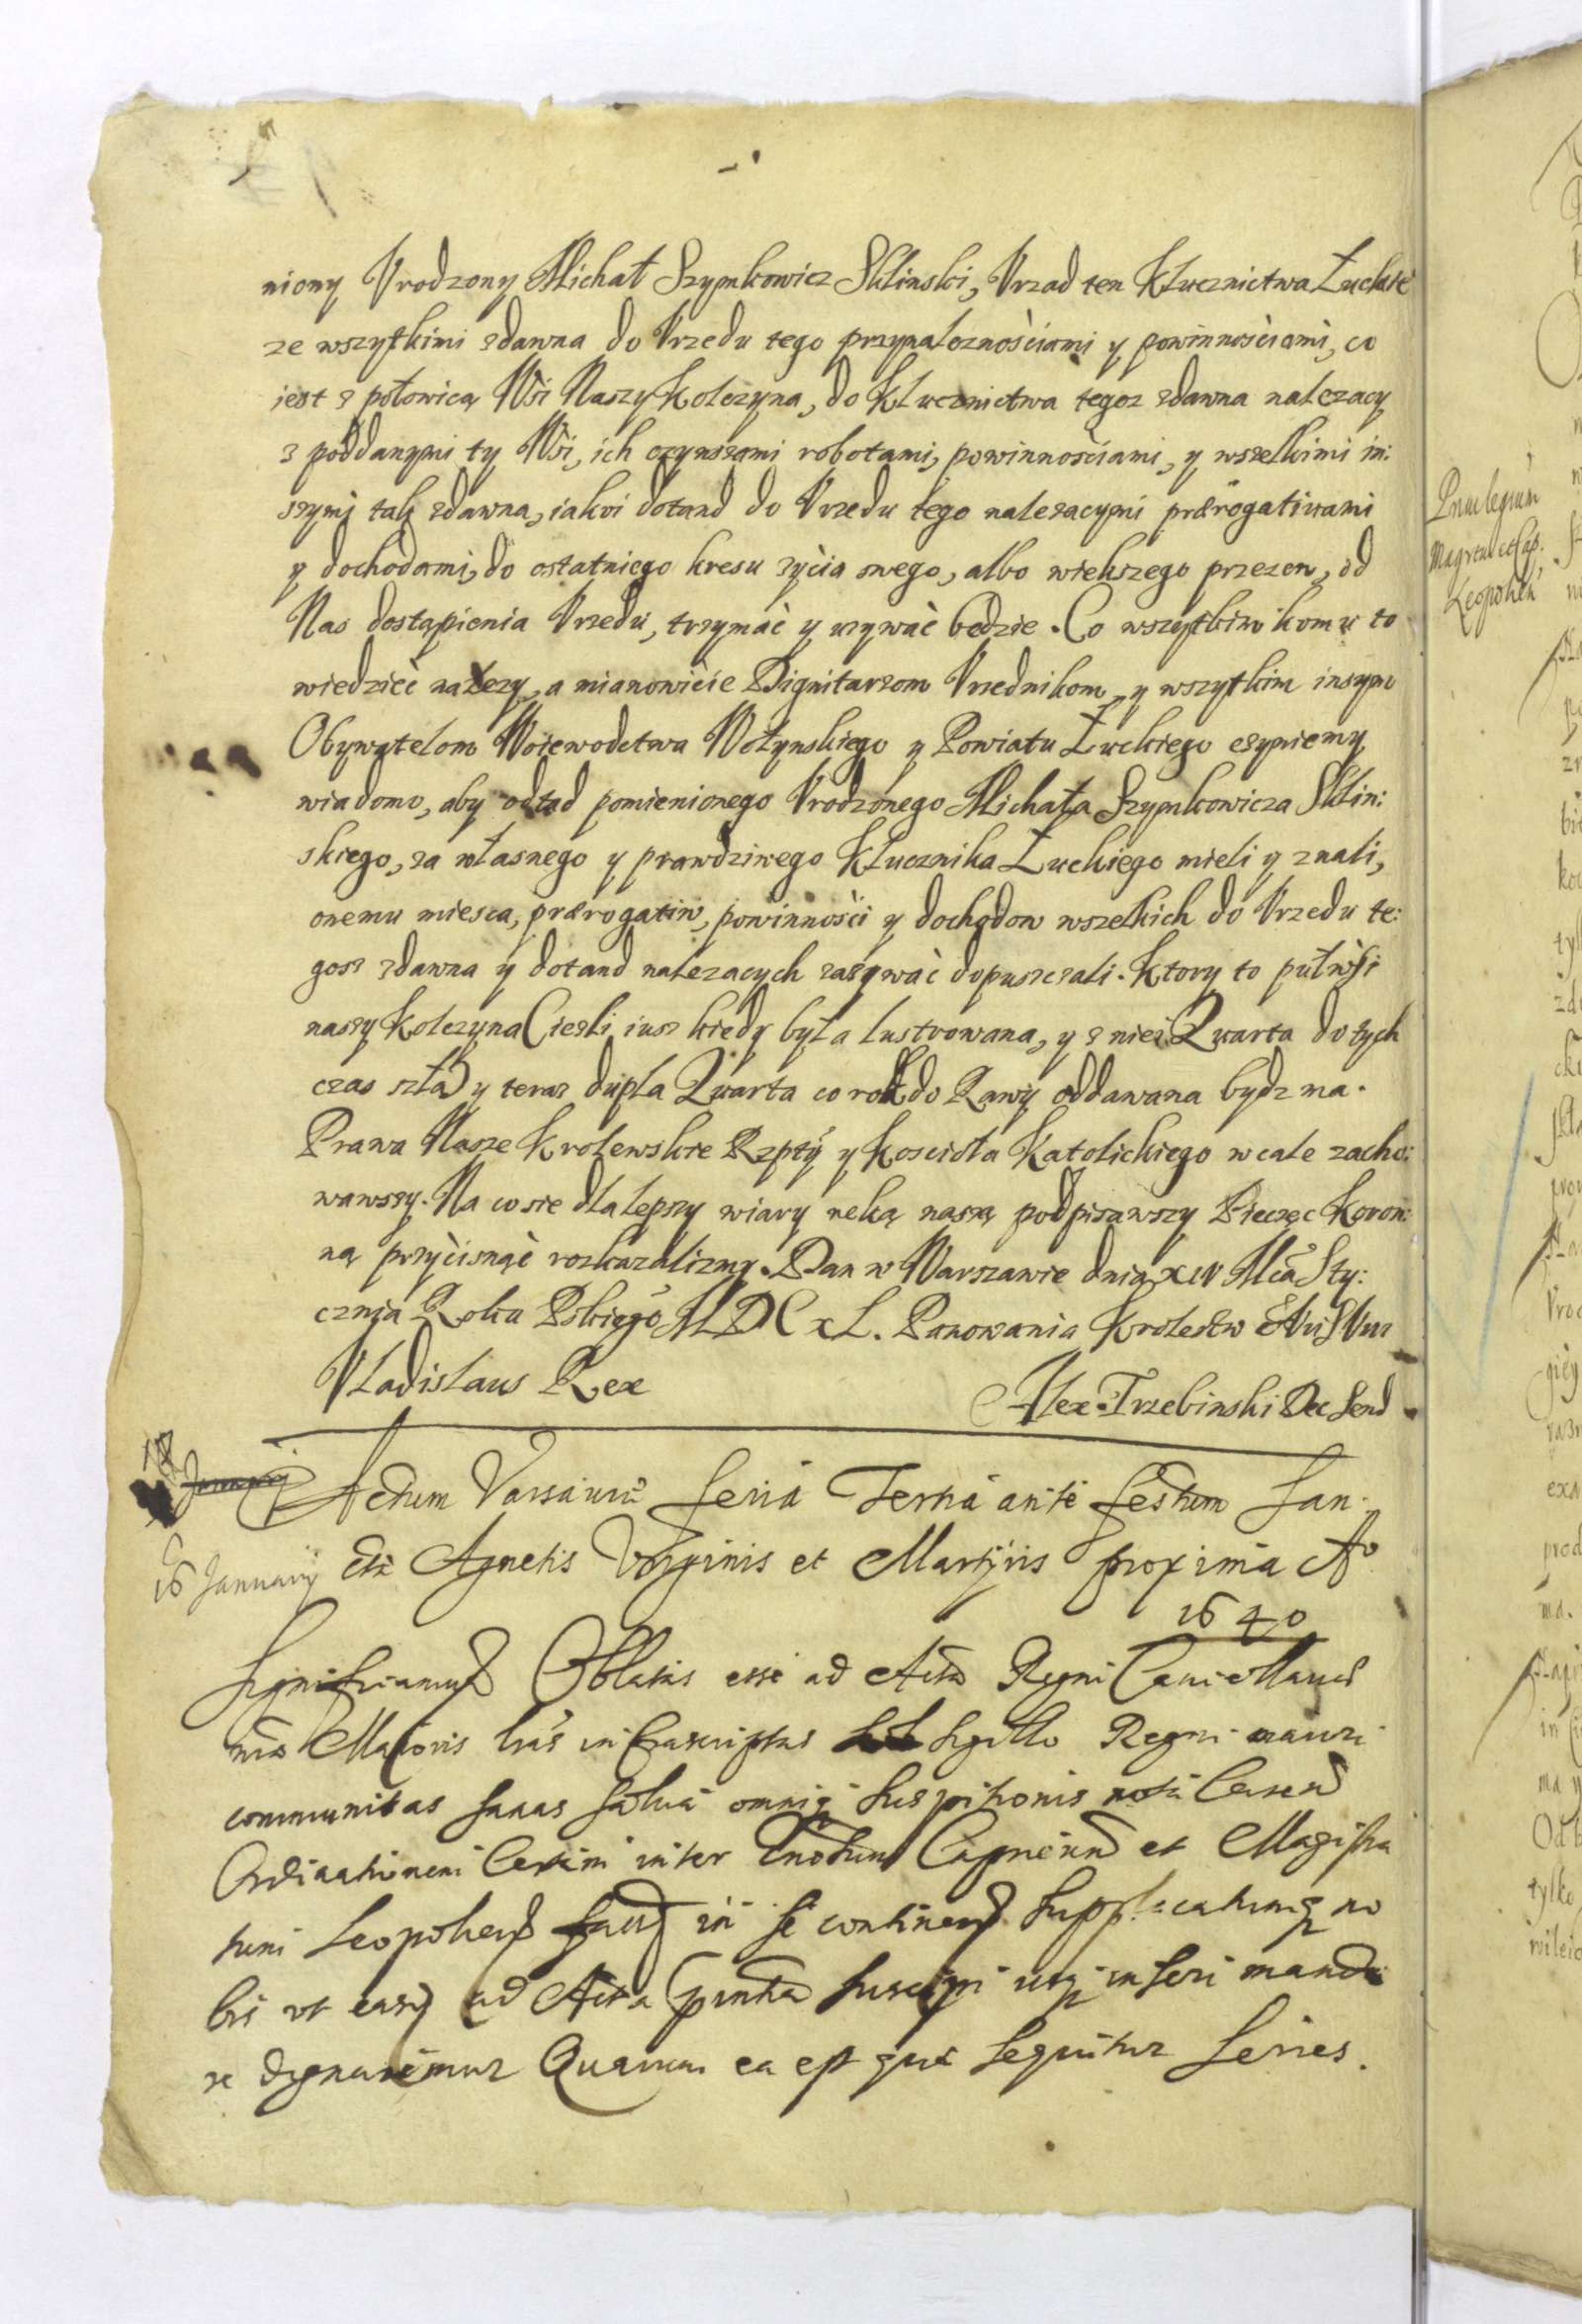 niony Vrodzony Michał Szymkowicz Sklinski, Vrzad ten Klucznictwa Łuckie
ze wszytkimi zdawna do Vrzedu tego przynależnościami y powinnościami, co
iest z połowicą Wsi Naszy Kolczyna, do Klucznictwa tegoz zdawna nalezacy
z poddanymi ty Wsi, ich czynszami robotami, powinnościami, y wszelkimi in:
szymi tak zdawna, iakoi dotand do Vrzedu tego nalezacymi prærogatiwami
y dochodami, do ostatniego kresu życia swego, albo wiekszego przezen, od
Nas dostąpienia Vrzedu, trzymać y uzywać bedzie. Co wszytkim komu to
wiedzieć nalezy, a mianowicie Dignitarzom Vrzednikom, y wszytkim inszym
Obywatelom Woiewodctwa Wołynskiego y Powiatu Łuckiego czyniemy
wiadomo, aby odtad pomienionego Vrodzonego Michała Szymkowicza Sklin:
skiego, za własnego y prawdziwego Klucznika Łuckiego mieli y znali,
onemu miesca, prærogatiw, powinności y dochodow wszelkich do Vrzedu te:
gosz zdawna y dotand nalezacych zazywać dopuszczali. Ktory to puł wsi
naszy Kolczyna (iesli iusz kiedy była lustrowana, y z niei Quarta do tych
czas szła) y teraz dupla Quarta co rok do Rawy oddawana bydz ma.
Prawa Nasze Krolewskie Rzpty y Koscioła Katolickiego w cale zacho:
wawszy. Na co sie dla lepszy wiary reką naszą podpisawszy Pieczęc Koron:
ną przyćisnąć rozkazalismy. Dan w Warszawie dnia XIV Mca Sty:
cznia Roku Pskiego MDCXL. Panowania Krolestw
Vladislaus Rex
Alex: Trzebinski
18
16 January
Actum Varsaviæ feria Tertia ante festum San
ctæ Agnetis Virginis et Martyris proxima Ao
1640
Significamus Oblatas esse ad Acta Regni Cancellariæ
Maioris lras infrascriptas Sigillo Regni
communitas sanas salvas omniq suspitionis nota
Ordinationem inter et Magistra
tum Leopolien in se continen supplicatumq no
bis ut ad Acta suscipi inseri manda
re dignaremur Quarum ea est quæ sequitur series.
Priuilegium
Leopolien